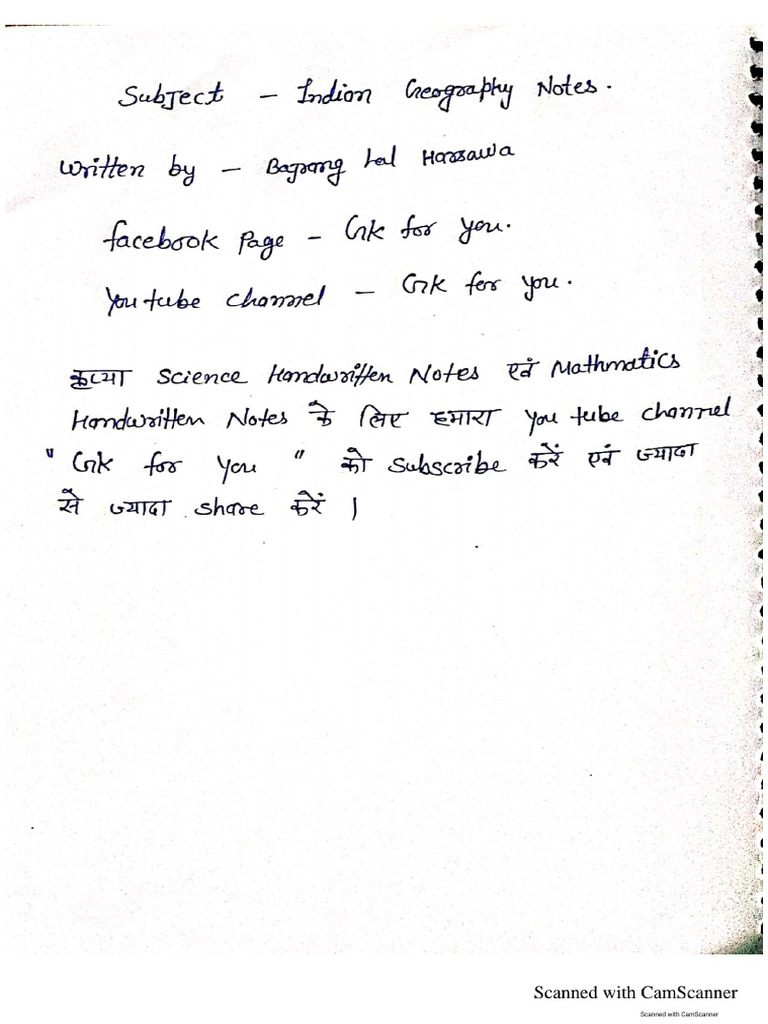 Subject - Indian Geography Notes.
Written by - Bajrang Lal Harsawa
facebook Page - Gk for you.
You tube channel - Gk for you.
कृप्या Science Handwritten Notes एवं Mathmatics
Handwritten Notes के लिए हमारा You tube channel
" Gk for you " को subscribe करें एवं ज्यादा
से ज्यादा share करें ।
Scanned with CamScanner
Scanned with CamScanner